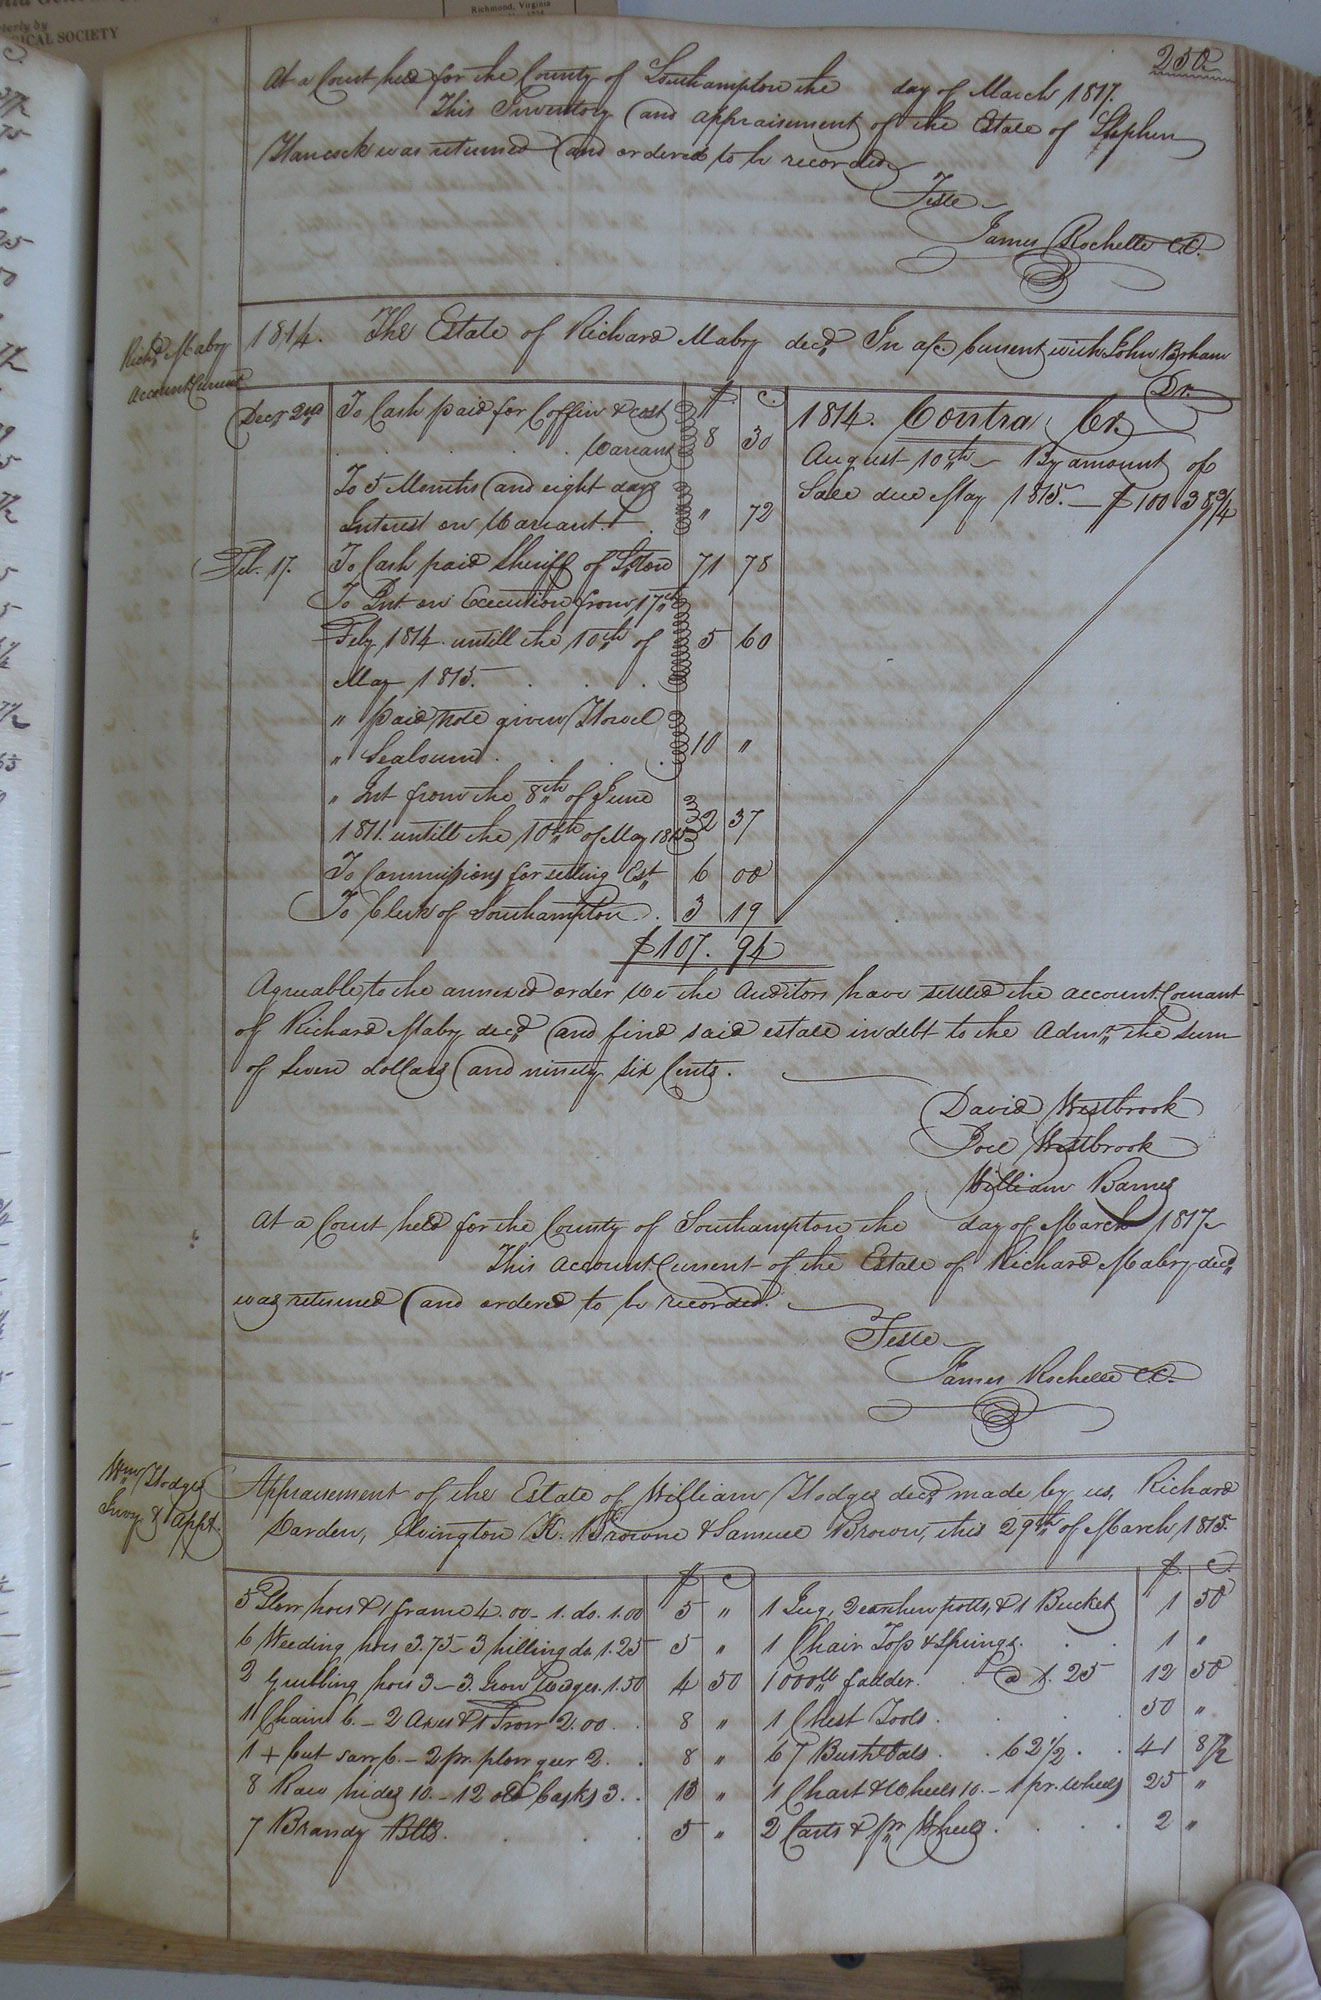 Richmond, Virginia
ICAL SOCIETY
250
At a Court held for the County of Southampton the day of March 1817.
This Inventory and appraisement of the Estate of Stephen
Hancock was returned and ordered to be recorded
Teste
James Rochelle C.C.
Richd. Mabry
Account Current
1814. The Estate of Richard Mabry decd. In a/c Current with John Barham
Dr.
$ c.
Decr. 2nd To Cash paid for Coffin & cost
Warrant 8 30
To 5 Months and eight days
Interest on Warrant " 72
Feb. 17. To Cash paid Sheriff of S.ton 71 78
To Int on Execution from 17th
Feby 1814 untill the 10th of 5 60
May 1815.
" paid note given Howel
" 10 "
" Int from the 8th of June
1811 untill the 10th of May 1815 2 37
To Commissions for setling Est. 6 00
To Clerk of Southampton. 3 19
$107. 94
1814. Contra Cr.
August 10th By amount of
Sale due May 1815. — $100 38 3/4
Agreable to the annexed order We the Auditors have settled the account Currant
of Richard Mabry decd. and find said estate indebt to the Admr. the sum
of seven dollars and ninety six Cents.
David Westbrook
Joel Westbrook
William Barnes
At a Court held for the County of Southampton the day of March 1817
This Account Current of the Estate of Richard Mabry decd.
was returned and ordered to be recorded.
Teste
James Rochelle C.C.
Wm. Hodges
Invy & Appt.
Appraisement of the Estate of William Hodges decd. made by us, Richard
Darden, Elvington K. Browne & Samuel Brown, this 29th of March, 1815.
$ c $ c
5 Plow hoes & 1 frame 4.00 - 1. do. 1.00 5 " 1 Jug, 2 earthen potts, & 1 Bucket 1 50
6 Weeding hoes 3.75 - 3 hilling do. 1.25 5 " 1 Chair Top & Springs. 1 "
2 Grubbing hoes 3 - 3 Iron Wedges. 1.50 4 50 1000lb fodder. @ 1.25 12 50
1 Chain 6. - 2 Axes & 1 Frow 2.00. 8 " 1 Chest Tools. 50 "
1 + Cut saw 6. - 2 pr. plow geer 2. 8 " 67 Bush Oats. 62 1/2. 41 87 1/2
8 Raw hides 10. - 12 old Casks 3. 13 " 1 Chart & Wheels 10. - 1 pr. wheels 25 "
7 Brandy Blls. 5 " 2 Carts & pr. Wheels. 2 "